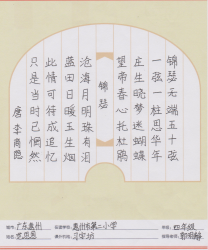 锦瑟无端五十弦
一弦一柱思华年
庄生晓梦迷蝴蝶
望帝春心托杜鹃
锦瑟
沧海月明珠有泪
蓝田日暖玉生烟
此情可待成追忆
只是当时已惘然
唐 李商隐
广东惠州 惠州市第二小学 四年级
姓名: